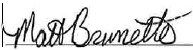 Matt Brunetto